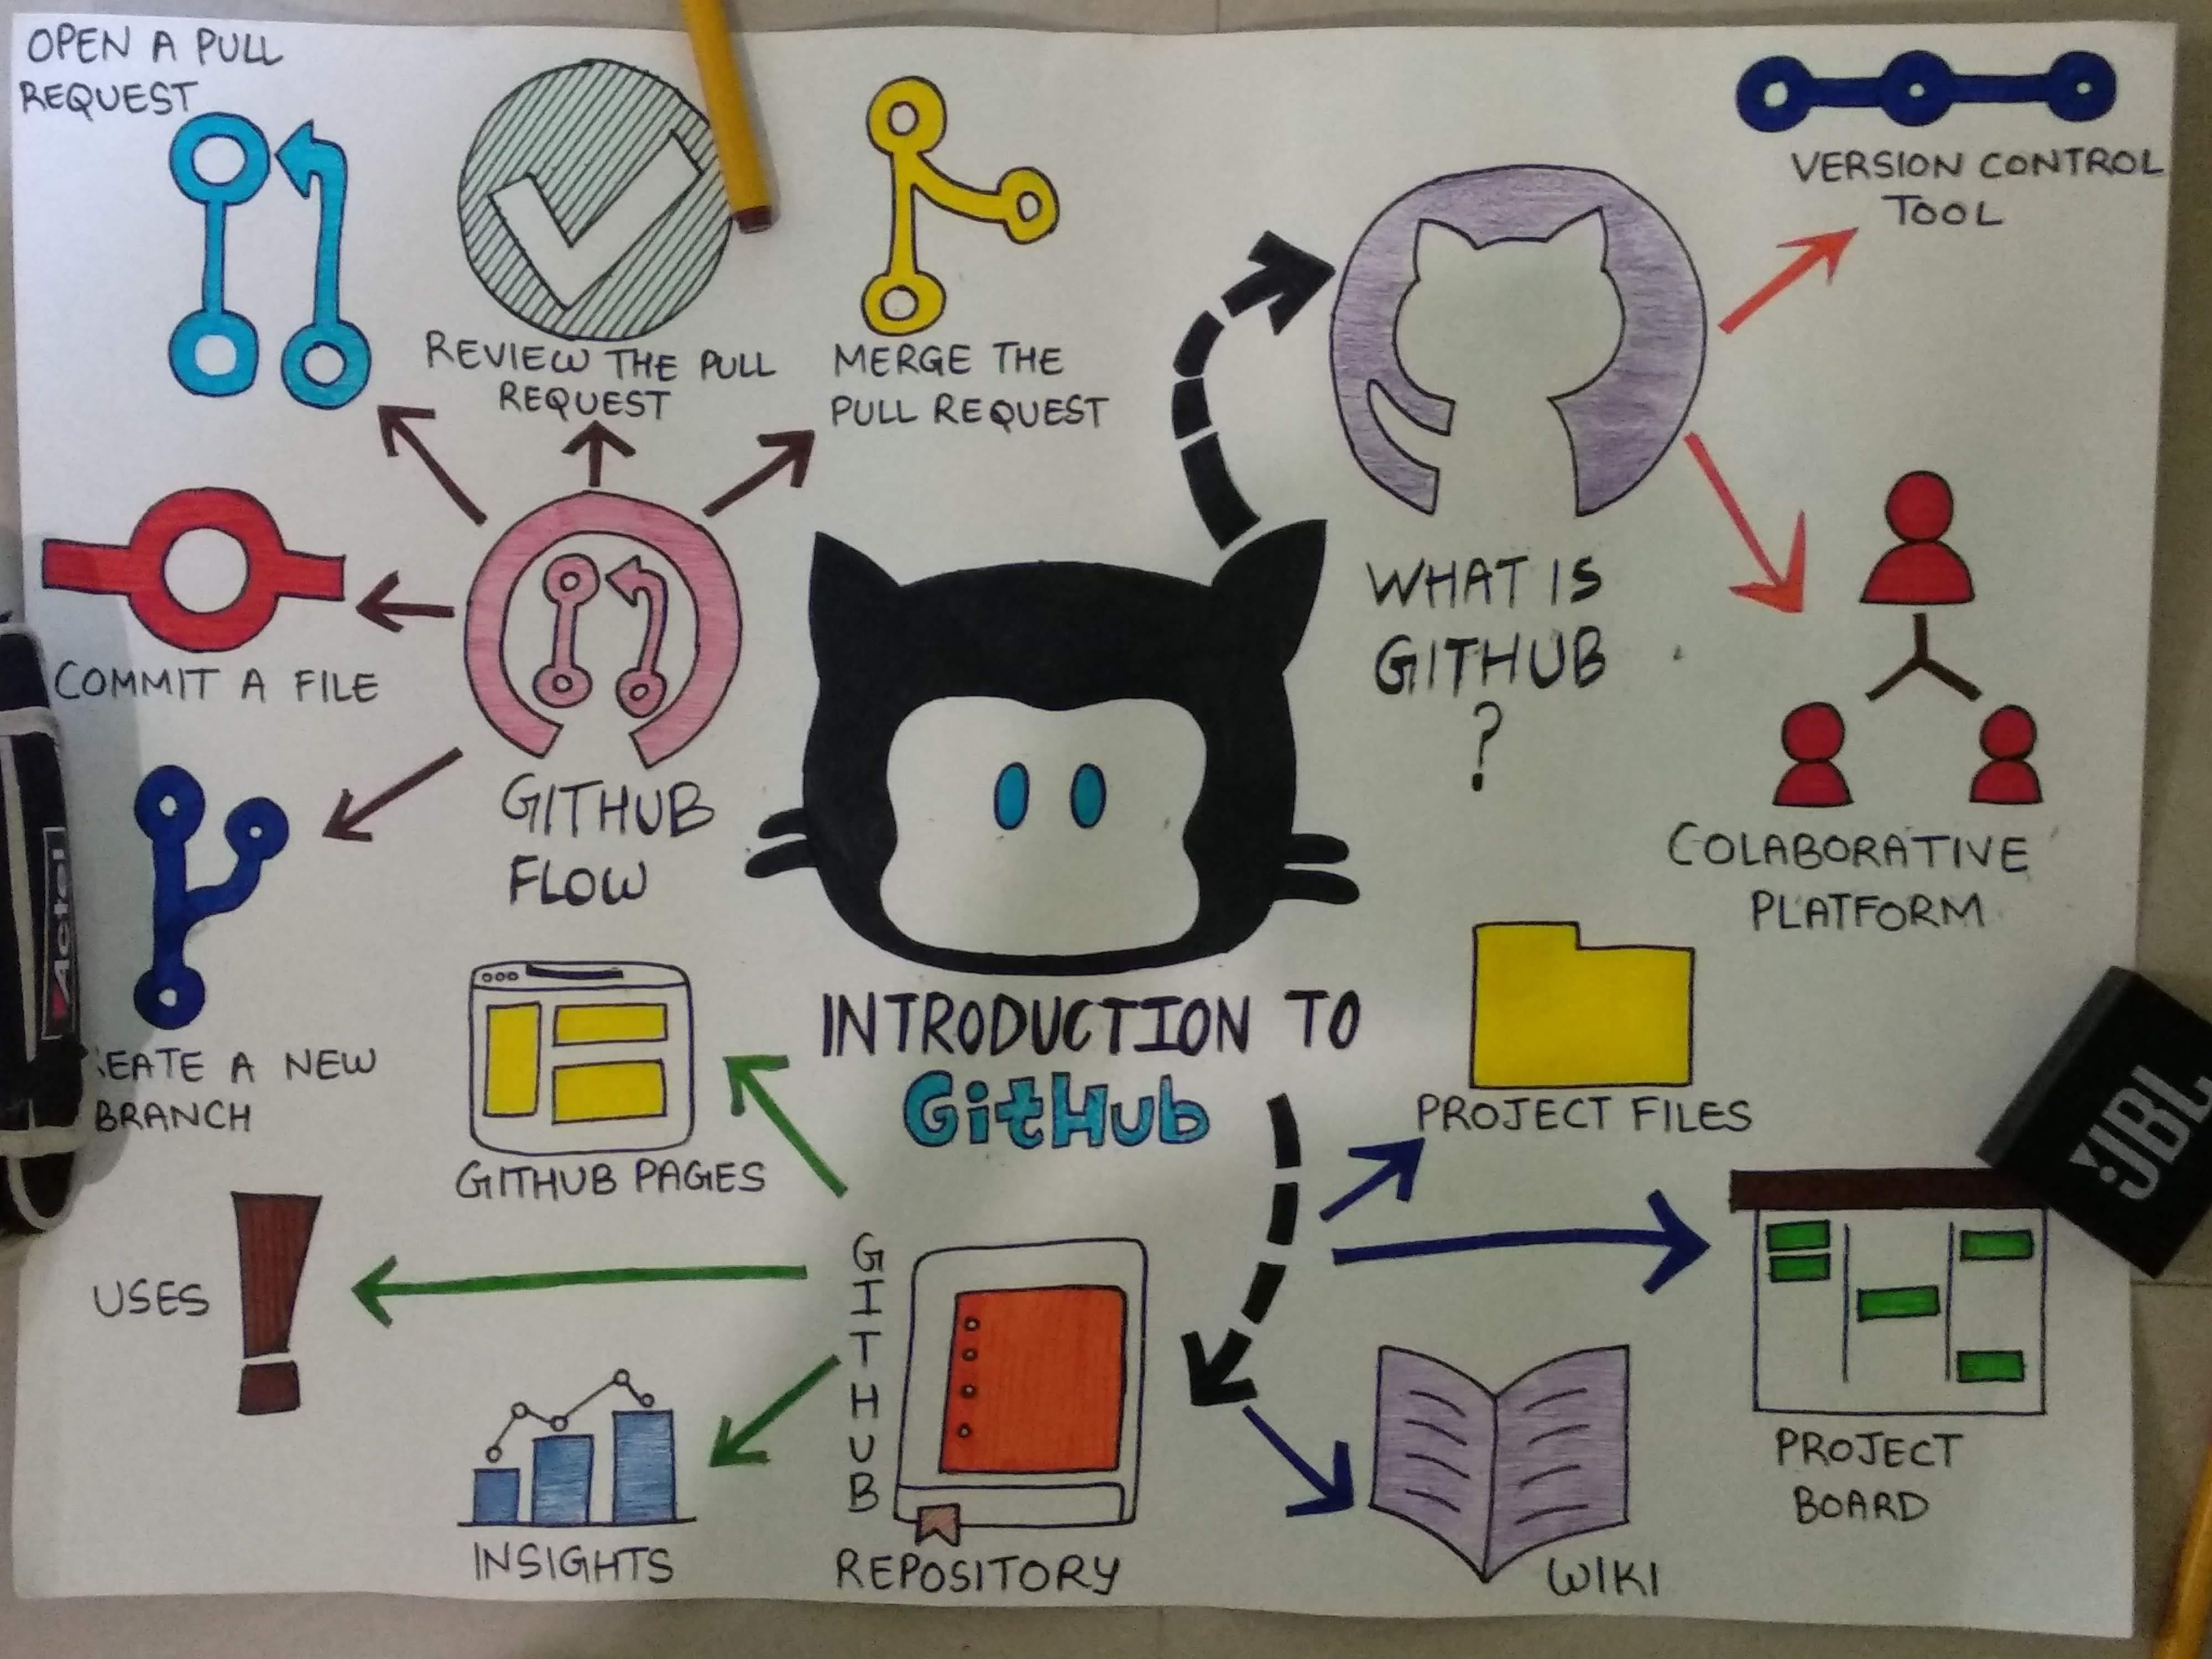 OPEN A PULL
REQUEST
REVIEW THE PULL
REQUEST
MERGE THE
PULL REQUEST
VERSION CONTROL
TOOL
COMMIT A FILE
GITHUB
FLOW
WHAT IS
GITHUB
?
COLABORATIVE
PLATFORM
EATE A NEW
BRANCH
INTRODUCTION TO
GitHub
GITHUB PAGES
PROJECT FILES
JBL
USES
GITHUB
REPOSITORY
INSIGHTS
WIKI
PROJECT
BOARD